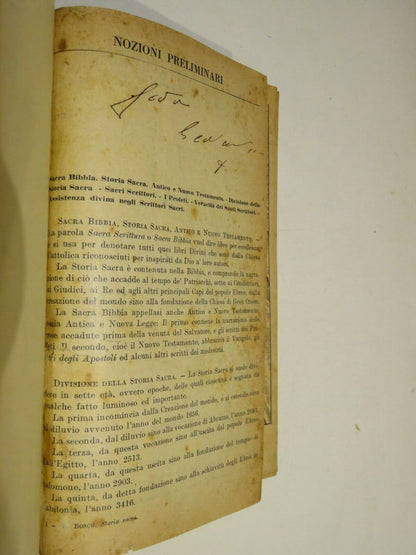 NOZIONI PRELIMINARI
Sacra Bibbia. Storia Sacra. Antico e Nuovo Testamento. - Divisione della
Storia Sacra - Sacri Scrittori. - I Profeti. - Veracità dei Santi Scrittori. -
Assistenza divina negli Scrittori Sacri.
SACRA BIBBIA, STORIA SACRA, ANTICO E NUOVO TESTAMENTO. —
La parola Sacra Scrittura o Sacra Bibbia vuol dire libro per eccellenza
e si usa per denotare tutti quei libri Divini che sono dalla Chiesa
Cattolica riconosciuti per inspirati da Dio a' loro autori.
La Storia Sacra è contenuta nella Bibbia, e comprende la narra-
zione di ciò che accadde al tempo de' Patriarchi, sotto ai Condottieri,
ai Giudici, ai Re ed agli altri principali Capi del popolo Ebreo, dalla
creazione del mondo sino alla fondazione della Chiesa di Gesù Cristo.
La Sacra Bibbia appellasi anche Antico e Nuovo Testamento,
ossia Antica e Nuova Legge: Il primo contiene la narrazione delle
cose accadute prima della venuta del Salvatore, e gli scritti dei Pro-
feti. Il secondo, cioè il Nuovo Testamento, abbraccia il Vangelo, gli
Atti degli Apostoli ed alcuni altri scritti dei medesimi.
DIVISIONE DELLA STORIA SACRA. — La Storia Sacra si suole divi-
dere in sette età, ovvero epoche, delle quali ciascuna è segnata da
qualche fatto luminoso ed importante.
La prima incomincia dalla Creazione del mondo, e si estende sino
al diluvio avvenuto l'anno del mondo 1656.
La seconda, dal diluvio sino alla vocazione di Abramo, l'anno 2083.
La terza, da questa vocazione sino all'uscita del popolo Ebreo
dall'Egitto, l'anno 2513.
La quarta, da questa uscita sino alla fondazione del tempio di
Salomone, l'anno 2903.
La quinta, da detta fondazione sino alla schiavitù degli Ebrei in
Babilonia, l'anno 3416.
1 - BOSCO. Storia sacra.